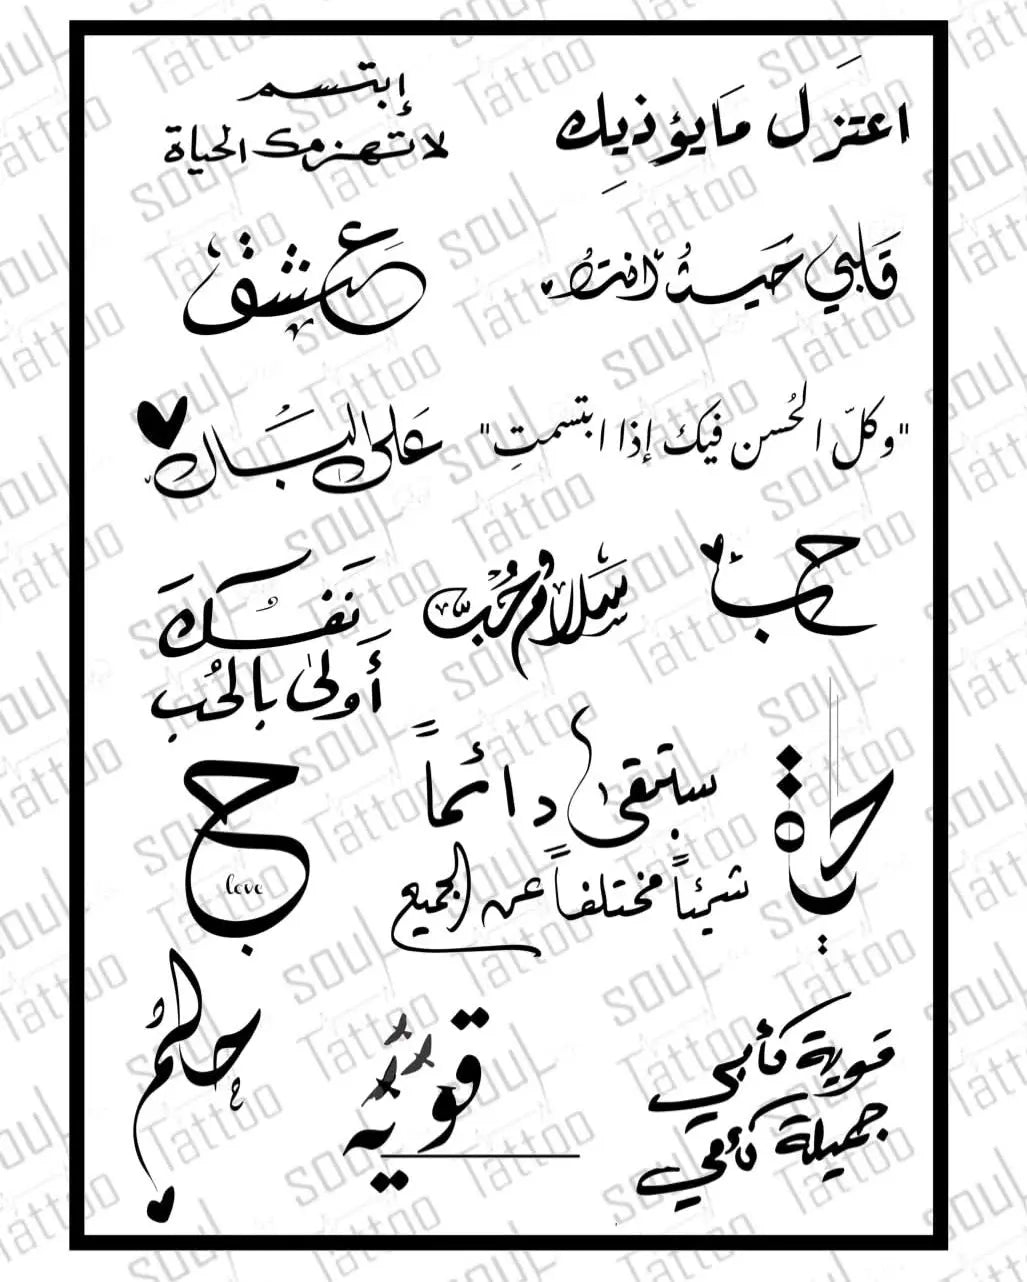 اعتَزِل مَايؤذيِك
إبتسم
لاتهزمك الحياة
قَلبي حَيثُ أنتَ
عشق
"وكلّ الحُسن فيك إذا ابتسمتِ"
عَلى البَال
حب
سَلامٌ حُبّ
نَفسْك
أَولىٰ بالحُب
حرة
ستبقىٰ دائماً
شيئاً مختلفاً عن الجميع
ح
love
حلم
قويّه
قوية كأبي
جميلة كأمي
SOUL Tattoo